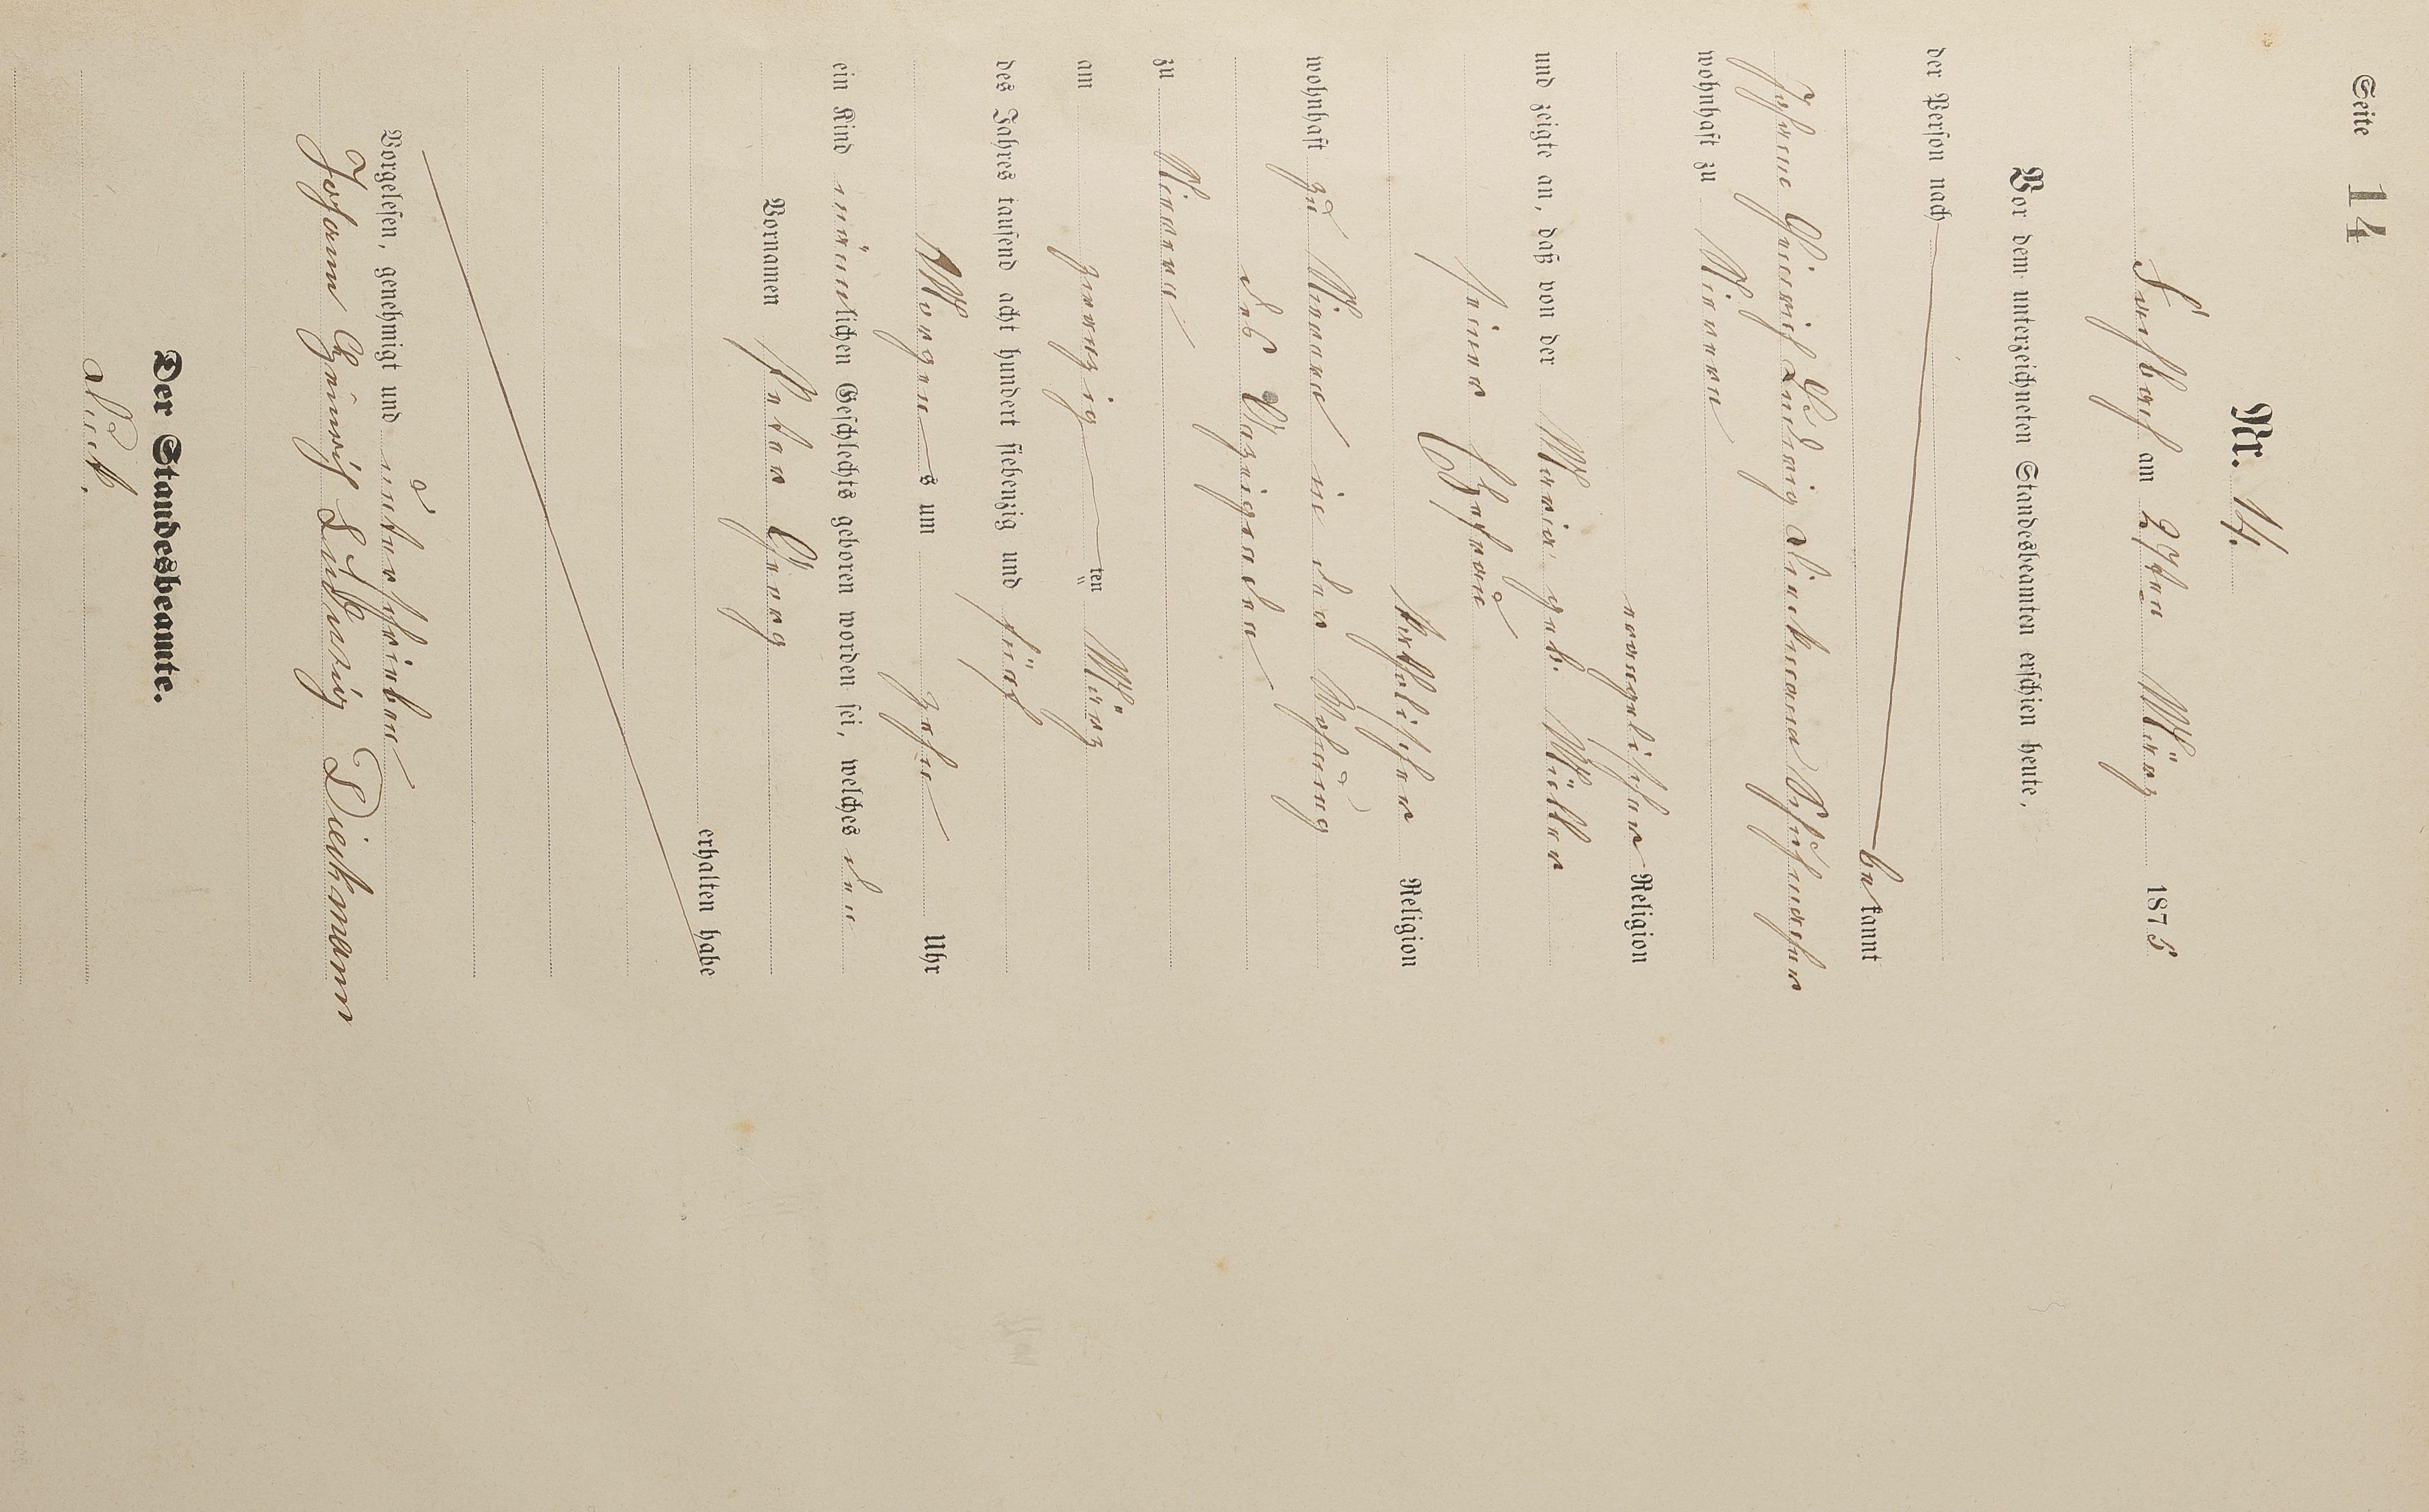 Seite 14
Nr. 14.
am 27ten März 1875
Vor dem unterzeichneten Standesbeamten erschien heute,
der Person nach
bekannt
Johann Heinrich Ludwig Dieckmann Schuhmacher
wohnhaft zu
evangelischer Religion
und zeigte an, daß von der Maria geb. Müller
seiner Ehefrau
katholischer Religion
wohnhaft zu in der Wohnung
des
zu
am zwanzigten März
des Jahres tausend acht hundert siebenzig und fünf
Morgens um zehn Uhr
ein Kind männlichen Geschlechts geboren worden sei, welches den
Vornamen Peter Georg
erhalten habe
Vorgelesen, genehmigt und unterschrieben
Johann Heinrich Ludwig Dieckmann
Der Standesbeamte.